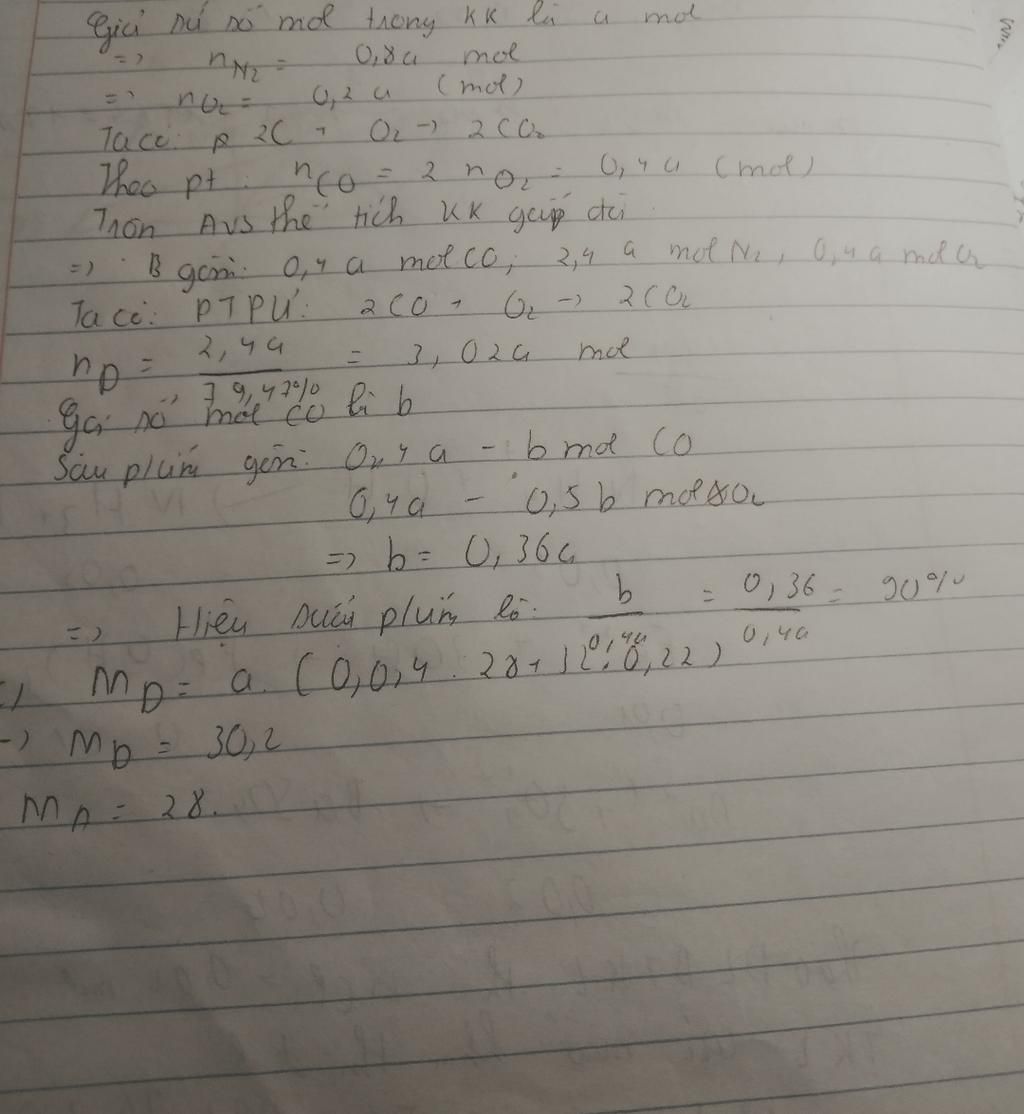 Giả sử số mol trong KK là a mol
=> nN2 = 0,8a mol
=> nO2 = 0,2a (mol)
Ta có: 2C + O2 -> 2CO2
Theo pt: nCO = 2 nO2 = 0,4a (mol)
Trộn A vs thể tích KK gấp đôi
=> B gồm: 0,4a mol CO, 2,4a mol N2, 0,4a mol O2
Ta có: PTPƯ: 2CO + O2 -> 2CO2
nD = 2,4a / 79,47% = 3,02a mol
Gọi số mol CO là b
Sau p/ứng gồm: 0,4a - b mol CO
0,4a - 0,5b mol O2
=> b = 0,36a
=> Hiệu suất p/ứng là: b / 0,4a = 0,36 / 0,4a = 90%
=> mD = a. (0,0,4 . 28 + 32. 0,22)
-> MD = 30,2
MA = 28.